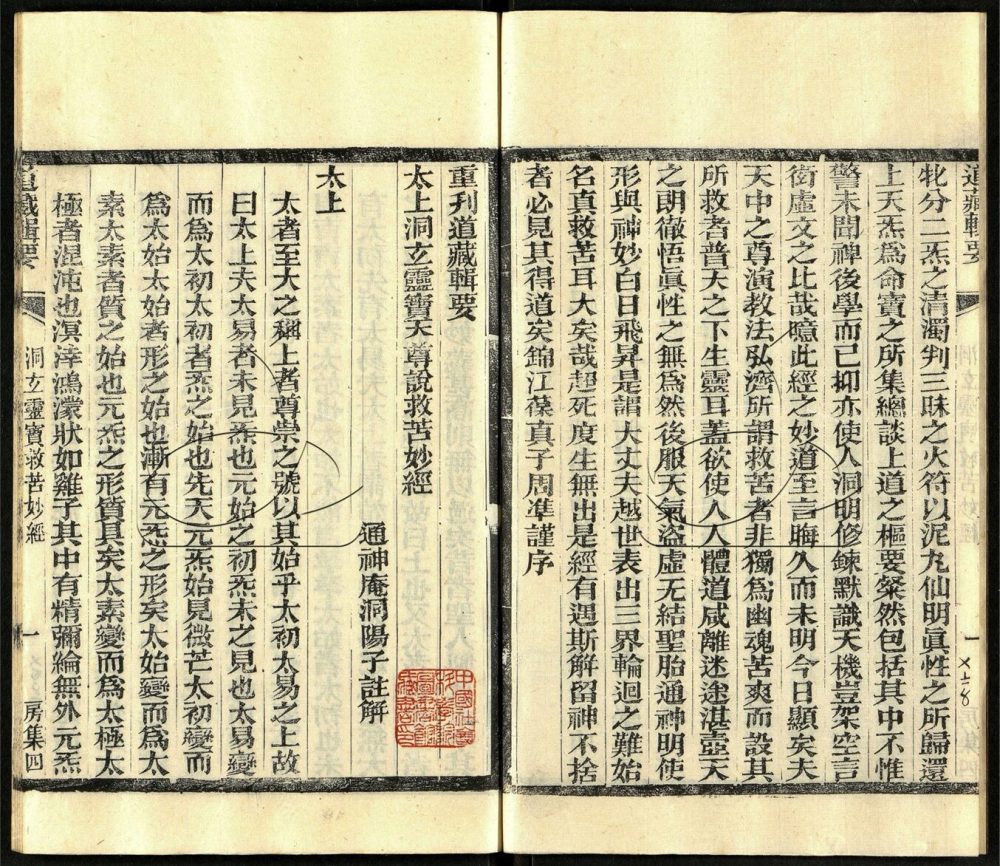 道藏輯要
牝分二炁之清濁判三昧之火符以泥丸仙明眞性之所歸還
上天炁爲命寶之所集總談上道之樞要粲然包括其中不惟
警未聞裨後學而已抑亦使人洞明修鍊默識天機豈架空言
衒虛文之比哉噫此經之妙道至言晦久而未明今日顯矣夫
天中之尊演教法弘濟所謂救苦者非獨爲幽魂苦爽而設其
所救者普天之下生靈耳蓋欲使人人體道咸離迷途湛壺天
之朗徹悟眞性之無爲然後服天氣盜虛无結聖胎通神明使
形與神妙白日飛昇是謂大丈夫越世表出三界輪迴之難始
名真救苦耳大矣哉起死度生無出是經有遇斯解留神不捨
者必見其得道矣錦江葆真子周準謹序
重刊道藏輯要
太上洞玄靈寶天尊說救苦妙經
通神庵洞陽子註解
太上
太者至大之稱上者尊崇之號以其始乎太初太易之上故
曰太上夫太易者未見炁也元始之初炁未之見也太易變
而爲太初太初者炁之始也先天元炁始見微芒太初變而
爲太始太始者形之始也漸有元炁之形矣太始變而爲太
素太素者質之始也元炁之形質具矣太素變而爲太極太
極者混沌也溟涬鴻濛狀如雞子其中有精彌綸無外元炁
道藏輯要
洞玄靈寶救苦妙經
一
房集四